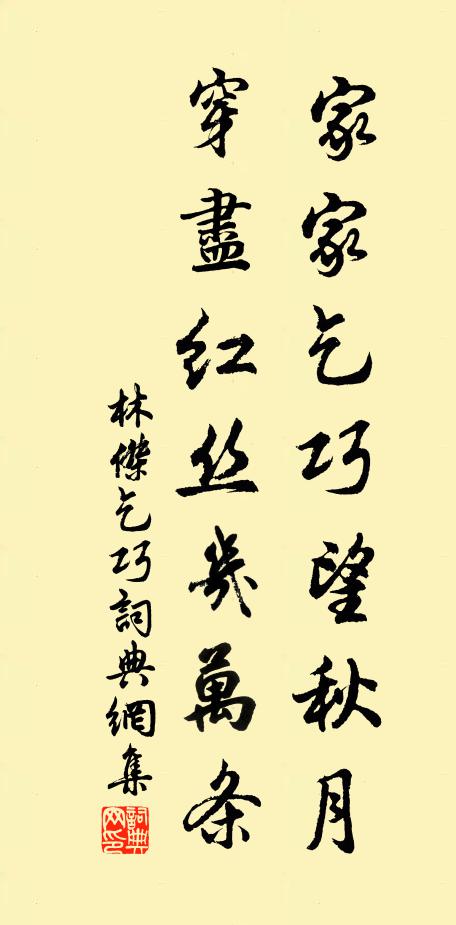 家家乞巧望秋月
穿盡红丝幾萬条
林傑乞巧詞典網集
詞典网印